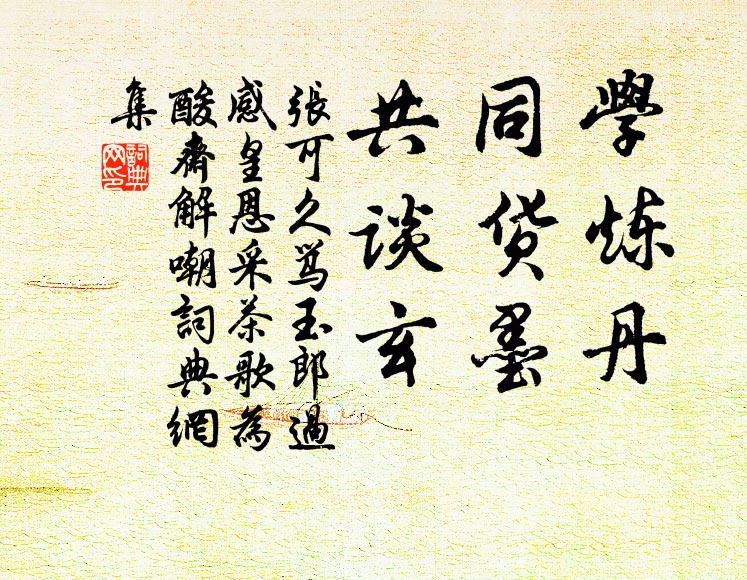 學炼丹
同货墨
共谈玄
張可久骂玉郎過
感皇恩采茶歌為
酸齋解嘲詞典網
集
詞典網印